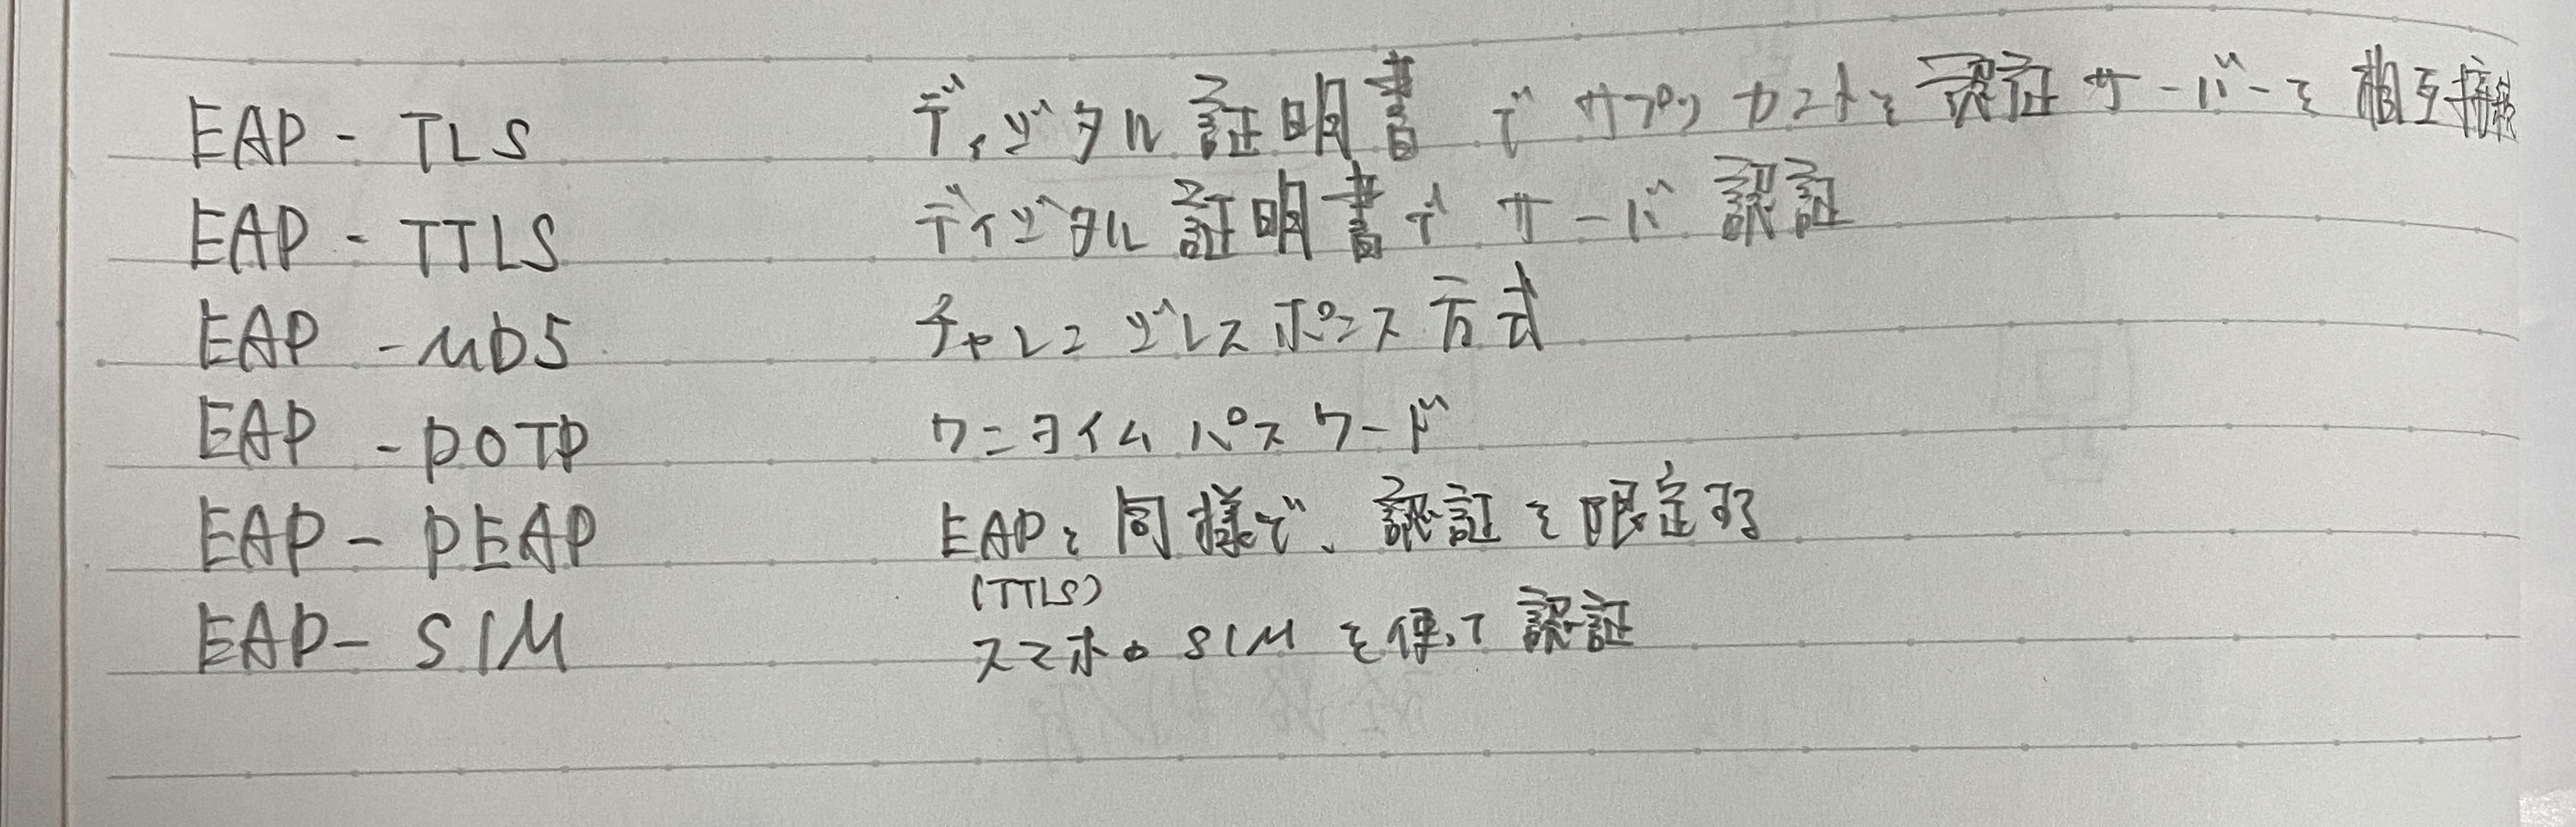 EAP - TLS ディジタル証明書でサプリカントと認証サーバーを相互接続
EAP - TTLS ディジタル証明書でサーバ認証
EAP - MD5 チャレンジレスポンス方式
EAP - POTP ワンタイムパスワード
EAP - PEAP EAPと同様で、認証を限定する
(TTLS)
EAP - SIM スマホのSIMを使って認証